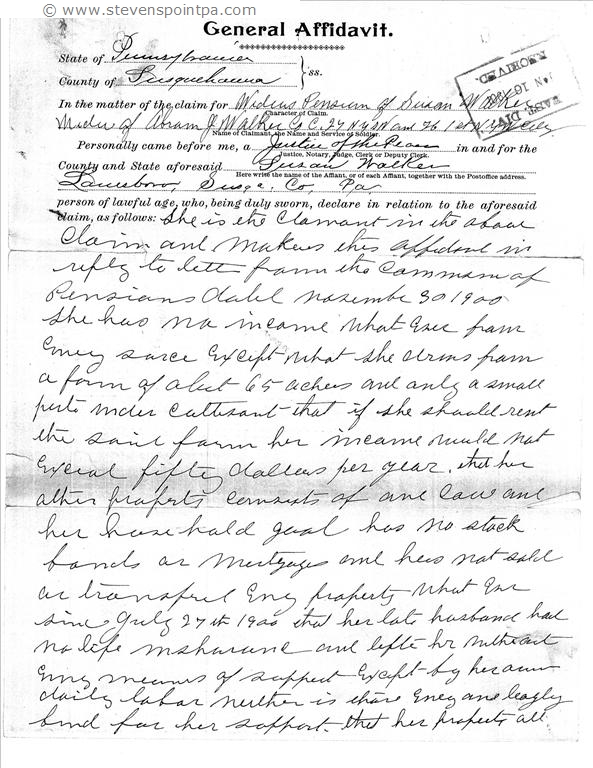 © www.stevenspointpa.com
General Affidavit.
State of Pennsylvania
County of Susquehanna } ss.
In the matter of the claim for Widows Pension of Susan Walker
Character of Claim.
Widow of Abram J Walker Co C, 27 N Y
Name of Claimant, the Name and Service of Soldier.
Personally came before me, a Justice of the Peace in and for the
Justice, Notary, Judge, Clerk or Deputy Clerk.
County and State aforesaid Susan Walker
Here write the name of the Affiant, or of each Affiant, together with the Postoffice address.
Lanesboro, Susqe. Co, Pa
person of lawful age, who, being duly sworn, declare in relation to the aforesaid
claim, as follows: She is the Claimant in the above
Claim and Makes this affidavit in
reply to lett from the Commsm of
Pensions dated November 30 1900
She has no income What Ever from
Eney sorce Except what she derives from
a farm of about 65 achers and only a small
perts under Cultivant that if she should rent
the said farm her income would not
Exceed fifty dollers per year. that her
other property consists of one Cow and
her household good has no stock
bonds or Mortgages and has not sold
or transferd Eney property What Ever
since July 27th 1900 that her late husband had
no life insharance and lefte hr without
Eney means of support Except by her own
daily labor neither is thare Eney one leagly
bond for her support. that her property all
RECEIVED
DIV.